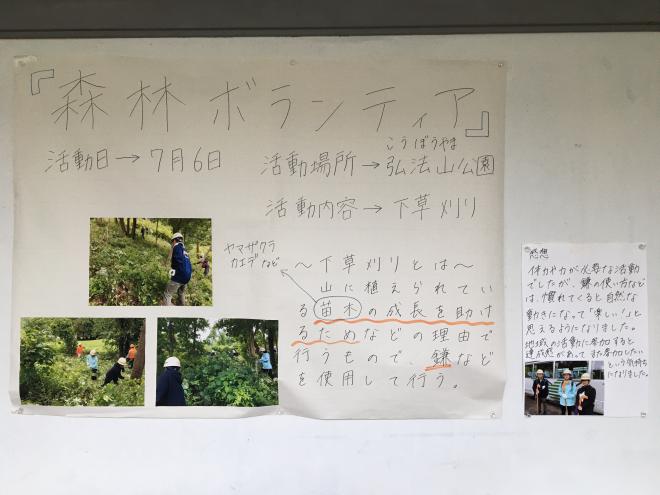 『森林ボランティア』
活動日→7月6日
活動場所→弘法山公園
こうぼうやま
活動内容→下草刈り
ヤマザクラ
カエデなど
〜下草刈りとは〜
山に植えられてい
る苗木の成長を助け
るためなどの理由で
行うもので、鎌など
を使用して行う。
感想
体力や力が必要な活動
でしたが、鎌の使い方など
は、慣れてくると自然な
動きになって「楽しい!」と
思えるようになりました。
地域の活動に参加すると
達成感があってまた参加したい
という気持ち
になりました。